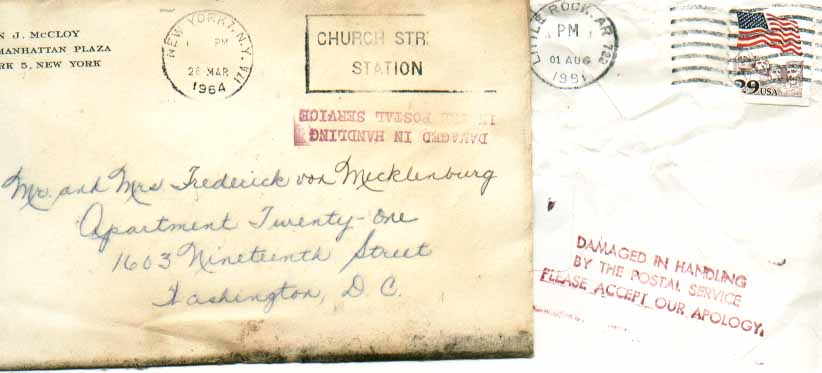 N J. McCLOY
MANHATTAN PLAZA
RK 5, NEW YORK
NEW YORK, N.Y.
PM
26 MAR
1964
CHURCH STR.
STATION
DAMAGED IN HANDLING
IN THE POSTAL SERVICE
Mr. and Mrs Frederick von Mecklenburg
Apartment Twenty-One
1603 Nineteenth Street
Washington, D.C.
LITTLE ROCK, AR 722
PM
01 AUG
1991
29 USA
DAMAGED IN HANDLING
BY THE POSTAL SERVICE
PLEASE ACCEPT OUR APOLOGY.